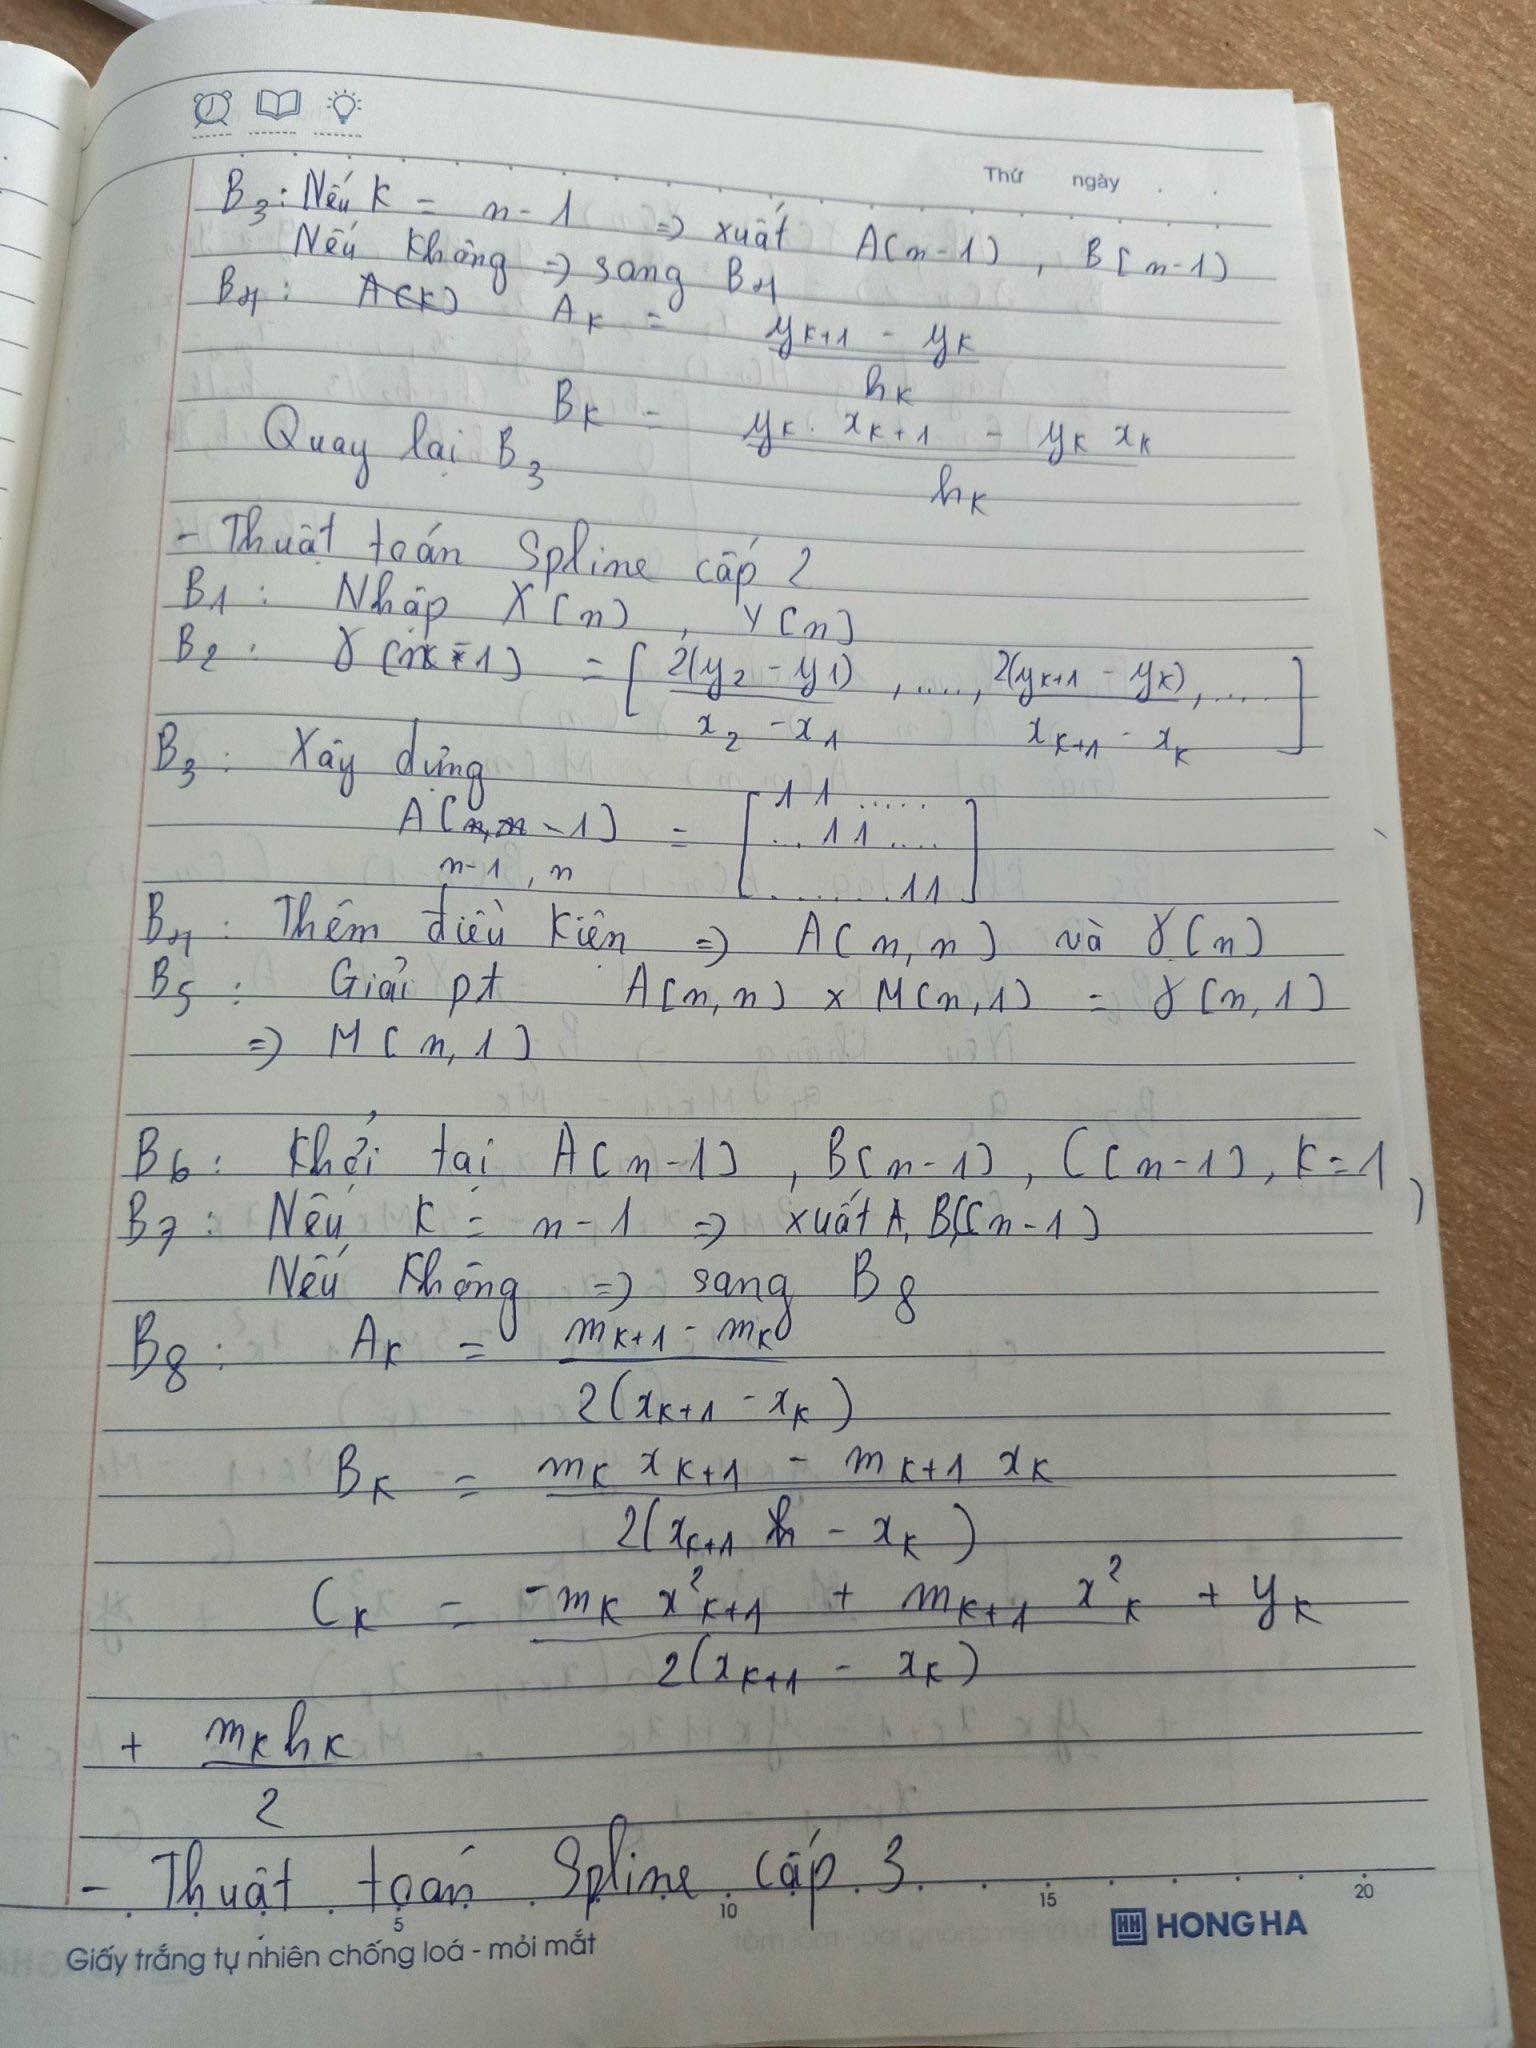 Thứ ngày
B3: Nếu K = n-1 => xuất A[n-1], B[n-1]
Nếu không => sang B4
B4: A(K) AK = (yK+1 - yK) / hK
BK = (yK. xK+1 - yK xK) / hK
Quay lại B3
- Thuật toán Spline cấp 2
B1: Nhập X[n], Y[n]
B2: γ[n-1] = [2(y2 - y1) / (x2 - x1), ...., 2(yK+1 - yK) / (xK+1 - xK), ...]
B3: Xây dựng
A[n,n-1] = [11.....
...11....
.......11]
n-1, n
B4: Thêm điều kiện => A[n,n] và γ[n]
B5: Giải pt A[n,n] x M[n,1] = γ[n,1]
=> M[n,1]
B6: Khởi tạo A[n-1], B[n-1], C[n-1], K=1
B7: Nếu K = n-1 => xuất A, B, C[n-1]
Nếu không => sang B8
B8: AK = (mK+1 - mK) / 2(xK+1 - xK)
BK = (mK xK+1 - mK+1 xK) / 2(xK+1 - xK)
CK = (-mK x²K+1 + mK+1 x²K) / 2(xK+1 - xK) + yK
+ mK hK / 2
- Thuật toán Spline cấp 3
5 10 15 20
Giấy trắng tự nhiên chống loá - mỏi mắt
HH HONG HA